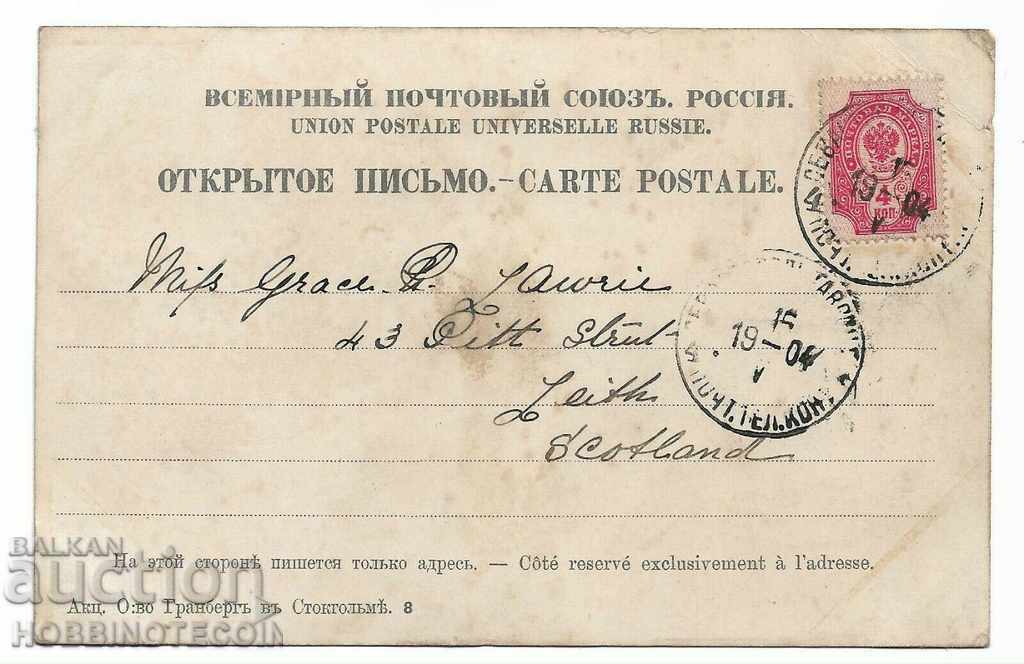 ВСЕМІРНЫЙ ПОЧТОВЫЙ СОЮЗЪ. РОССІЯ.
UNION POSTALE UNIVERSELLE RUSSIE.
ОТКРЫТОЕ ПИСЬМО.-CARTE POSTALE.
ПОЧТОВАЯ МАРКА
4
КОП.
19 04
V
Miss Grace R. Lawrie
43 Pitt Street
Leith
Scotland
15
19 04
V
ПОЧТ.ТЕЛ.КОН
На этой сторонѣ пишется только адресъ. — Côté reservé exclusivement à l'adresse.
Акц. О:во Гранбергъ въ Стокгольмѣ. 8
BALKAN
auction
HOBBINOTECOIN